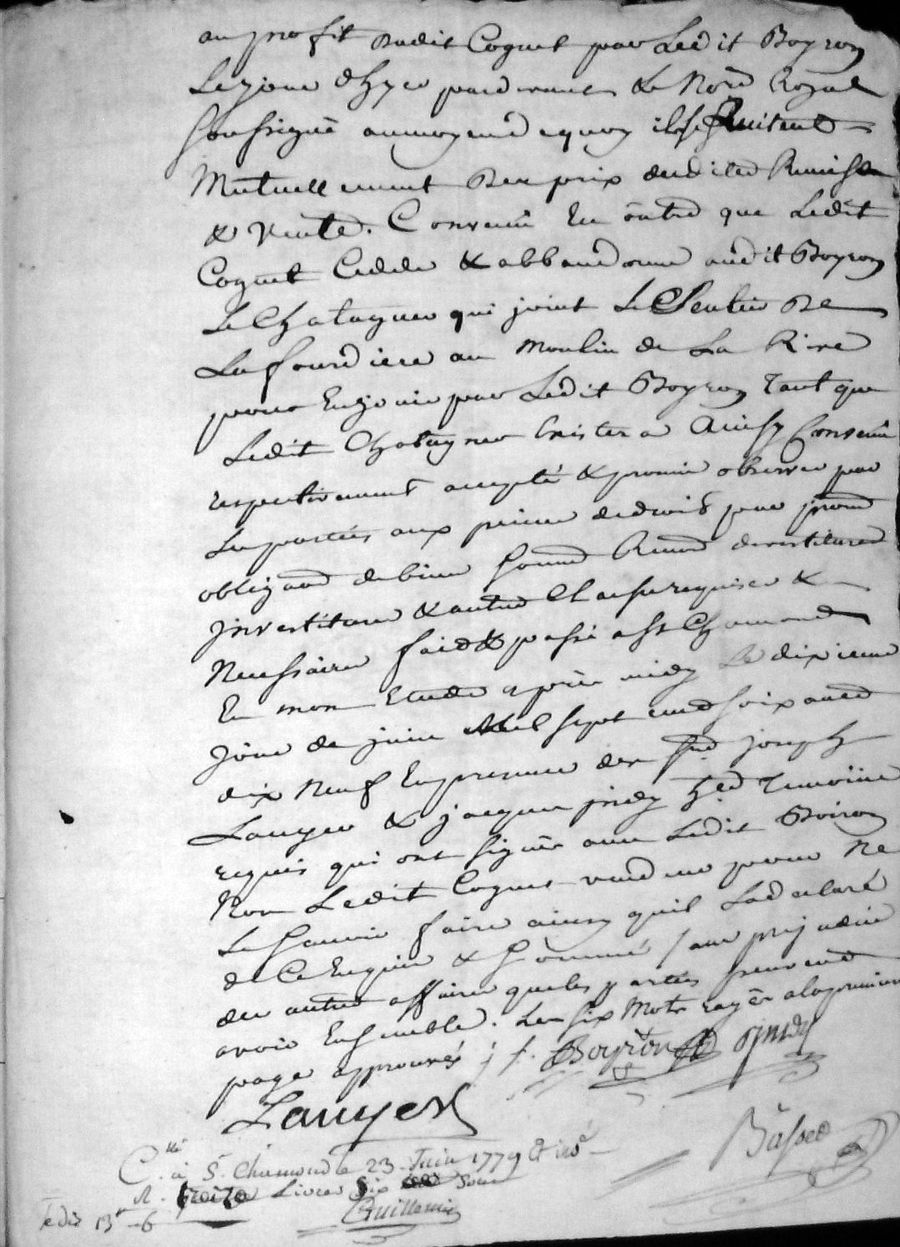 au profit dudit Coquet par Ledit Boyron
Le jour d'hyer pardevant Le Nore Royal
Soussigné aumoyend equoy ils se quitent
Mutuellement des prix desdites Remise
& Vente. Convenu En outre que Ledit
Coquet Cedde & abbandonne audit Boyron
Le Chatagner qui joint Le Sentier De
La fourdiere au Moulin de La Rive
pour En jouir par Ledit Boyron Tant que
Ledit Chatagner Existera Ainsy Convenu
respectivement accepté & promis observer par
Les parties aux peines de droit par
obligaõn de biens Soumõn Renõn devestiture
investiture & autres Clauses requises &
Necessaires fait & passé a St Chamond
En mon Etude après midy Le dixieme
Jour de juin Mil sept cend soixante
dix Neuf En presence des Srs joseph
Lauyer & jacques pindy hd Temoins
requis qui ont signés avec Ledit Boiron
Non Ledit Coquet vendeur pour Ne
Le Sçavoir faire ainsy quil La declaré
de Ce Enquis & Sommé / sans prejudice
des autres affaires que les parties peuvent
avoir Ensemble. Les six Mots rayés a la premiere
page approuvés ; f. Boyron pindy
Lauyer
Basset
Cllé à St. Chamond le 23 Juin 1779
R. treize Livres Six Sous
13# 6 Guillemin